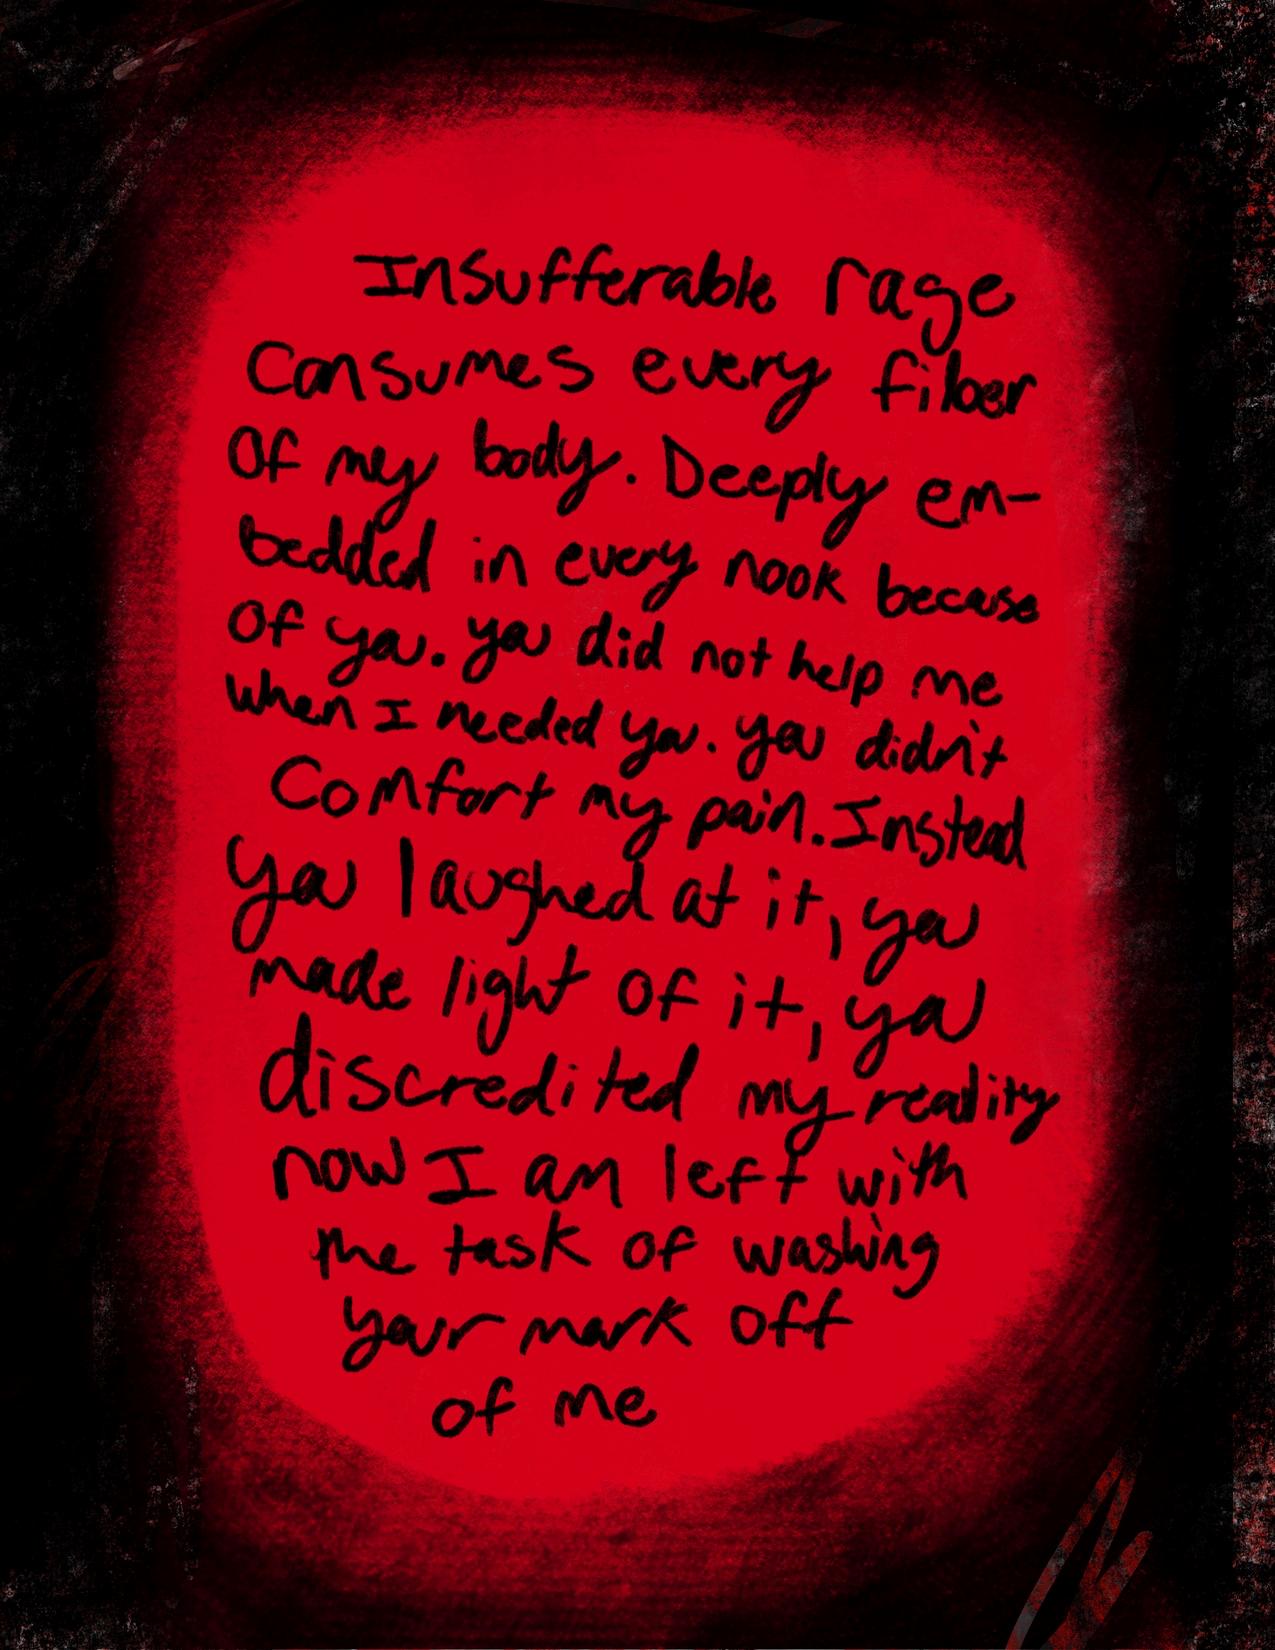 Insufferable rage
Consumes every fiber
Of my body. Deeply em-
bedded in every nook because
Of you. you did not help me
when I needed you. you didn't
Comfort my pain. Instead
you laughed at it, you
made light of it, you
discredited my reality
now I am left with
the task of washing
your mark off
of me